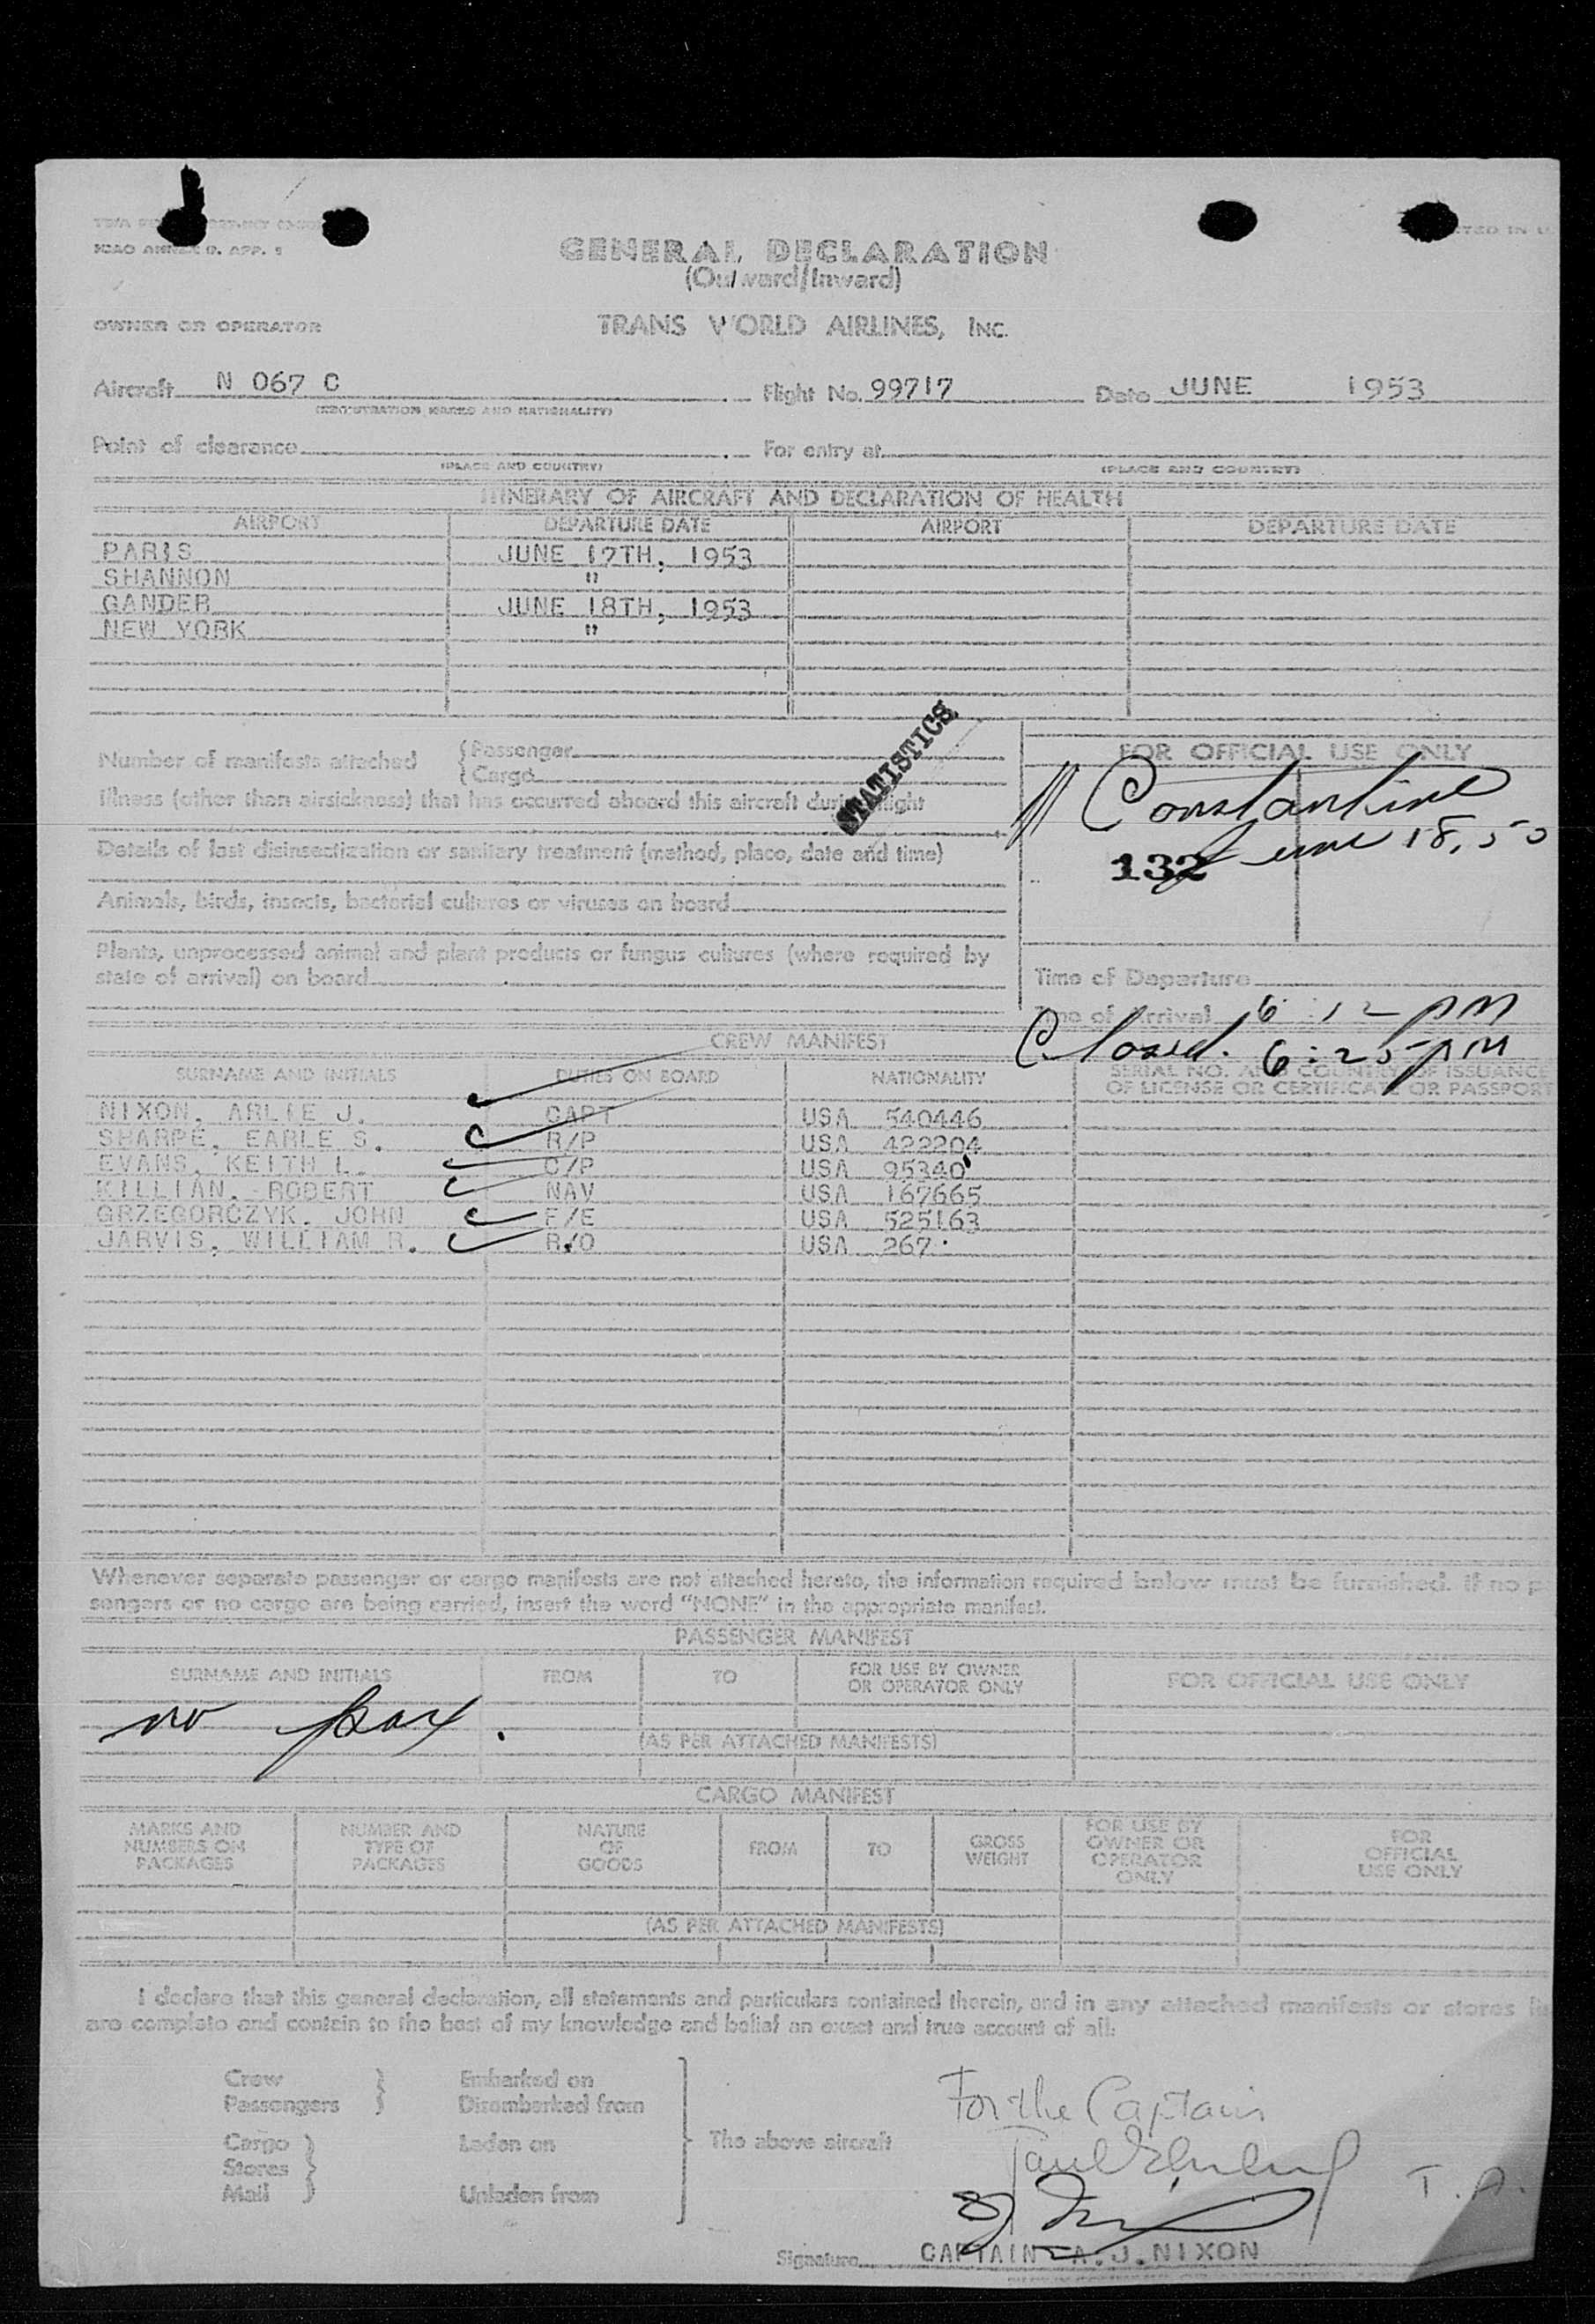 ICAO ANNEX 9. APP. 1
GENERAL DECLARATION
(Outward/Inward)
OWNER OR OPERATOR TRANS WORLD AIRLINES, INC.
Aircraft N 067 C Flight No. 99717 Date JUNE 1953
(REGISTRATION MARKS AND NATIONALITY)
Point of clearance For entry at
(PLACE AND COUNTRY) (PLACE AND COUNTRY)
ITINERARY OF AIRCRAFT AND DECLARATION OF HEALTH
AIRPORT DEPARTURE DATE AIRPORT DEPARTURE DATE
PARIS JUNE 17TH, 1953
SHANNON "
GANDER JUNE 18TH, 1953
NEW YORK "
STATISTICS
Number of manifests attached { Passenger
{ Cargo
Illness (other than airsickness) that has occurred aboard this aircraft during flight
Details of last disinsectization or sanitary treatment (method, place, date and time)
Animals, birds, insects, bacterial cultures or viruses on board
Plants, unprocessed animal and plant products or fungus cultures (where required by
state of arrival) on board
FOR OFFICIAL USE ONLY
Constantine
June 18, 53
132
Time of Departure
Time of Arrival 6:12 PM
Closed. 6:25 PM
CREW MANIFEST
SURNAME AND INITIALS DUTIES ON BOARD NATIONALITY SERIAL NO. AND COUNTRY OF ISSUANCE
OF LICENSE OR CERTIFICATE OR PASSPORT
NIXON, ARLIE J. CAPT USA 540446
SHARPE, EARLE S. R/P USA 422204
EVANS, KEITH L. C/P USA 95340
KILLIAN, ROBERT NAV USA 167665
GRZEGORCZYK, JOHN F/E USA 525163
JARVIS, WILLIAM R. R/O USA 267
Whenever separate passenger or cargo manifests are not attached hereto, the information required below must be furnished. If no p
sengers or no cargo are being carried, insert the word "NONE" in the appropriate manifest.
PASSENGER MANIFEST
SURNAME AND INITIALS FROM TO FOR USE BY OWNER
OR OPERATOR ONLY FOR OFFICIAL USE ONLY
no pax.
(AS PER ATTACHED MANIFESTS)
CARGO MANIFEST
MARKS AND
NUMBERS ON
PACKAGES
NUMBER AND
TYPE OF
PACKAGES
NATURE
OF
GOODS
FROM
TO
GROSS
WEIGHT
FOR USE BY
OWNER OR
OPERATOR
ONLY
FOR
OFFICIAL
USE ONLY
(AS PER ATTACHED MANIFESTS)
I declare that this general declaration, all statements and particulars contained therein, and in any attached manifests or stores
are complete and contain to the best of my knowledge and belief an exact and true account of all:
Crew } Embarked on
Passengers } Disembarked from
Cargo } Laden on
Stores }
Mail } Unladen from
The above aircraft
For the Captain
Paul
T. A.
Signature CAPTAIN A.J.NIXON